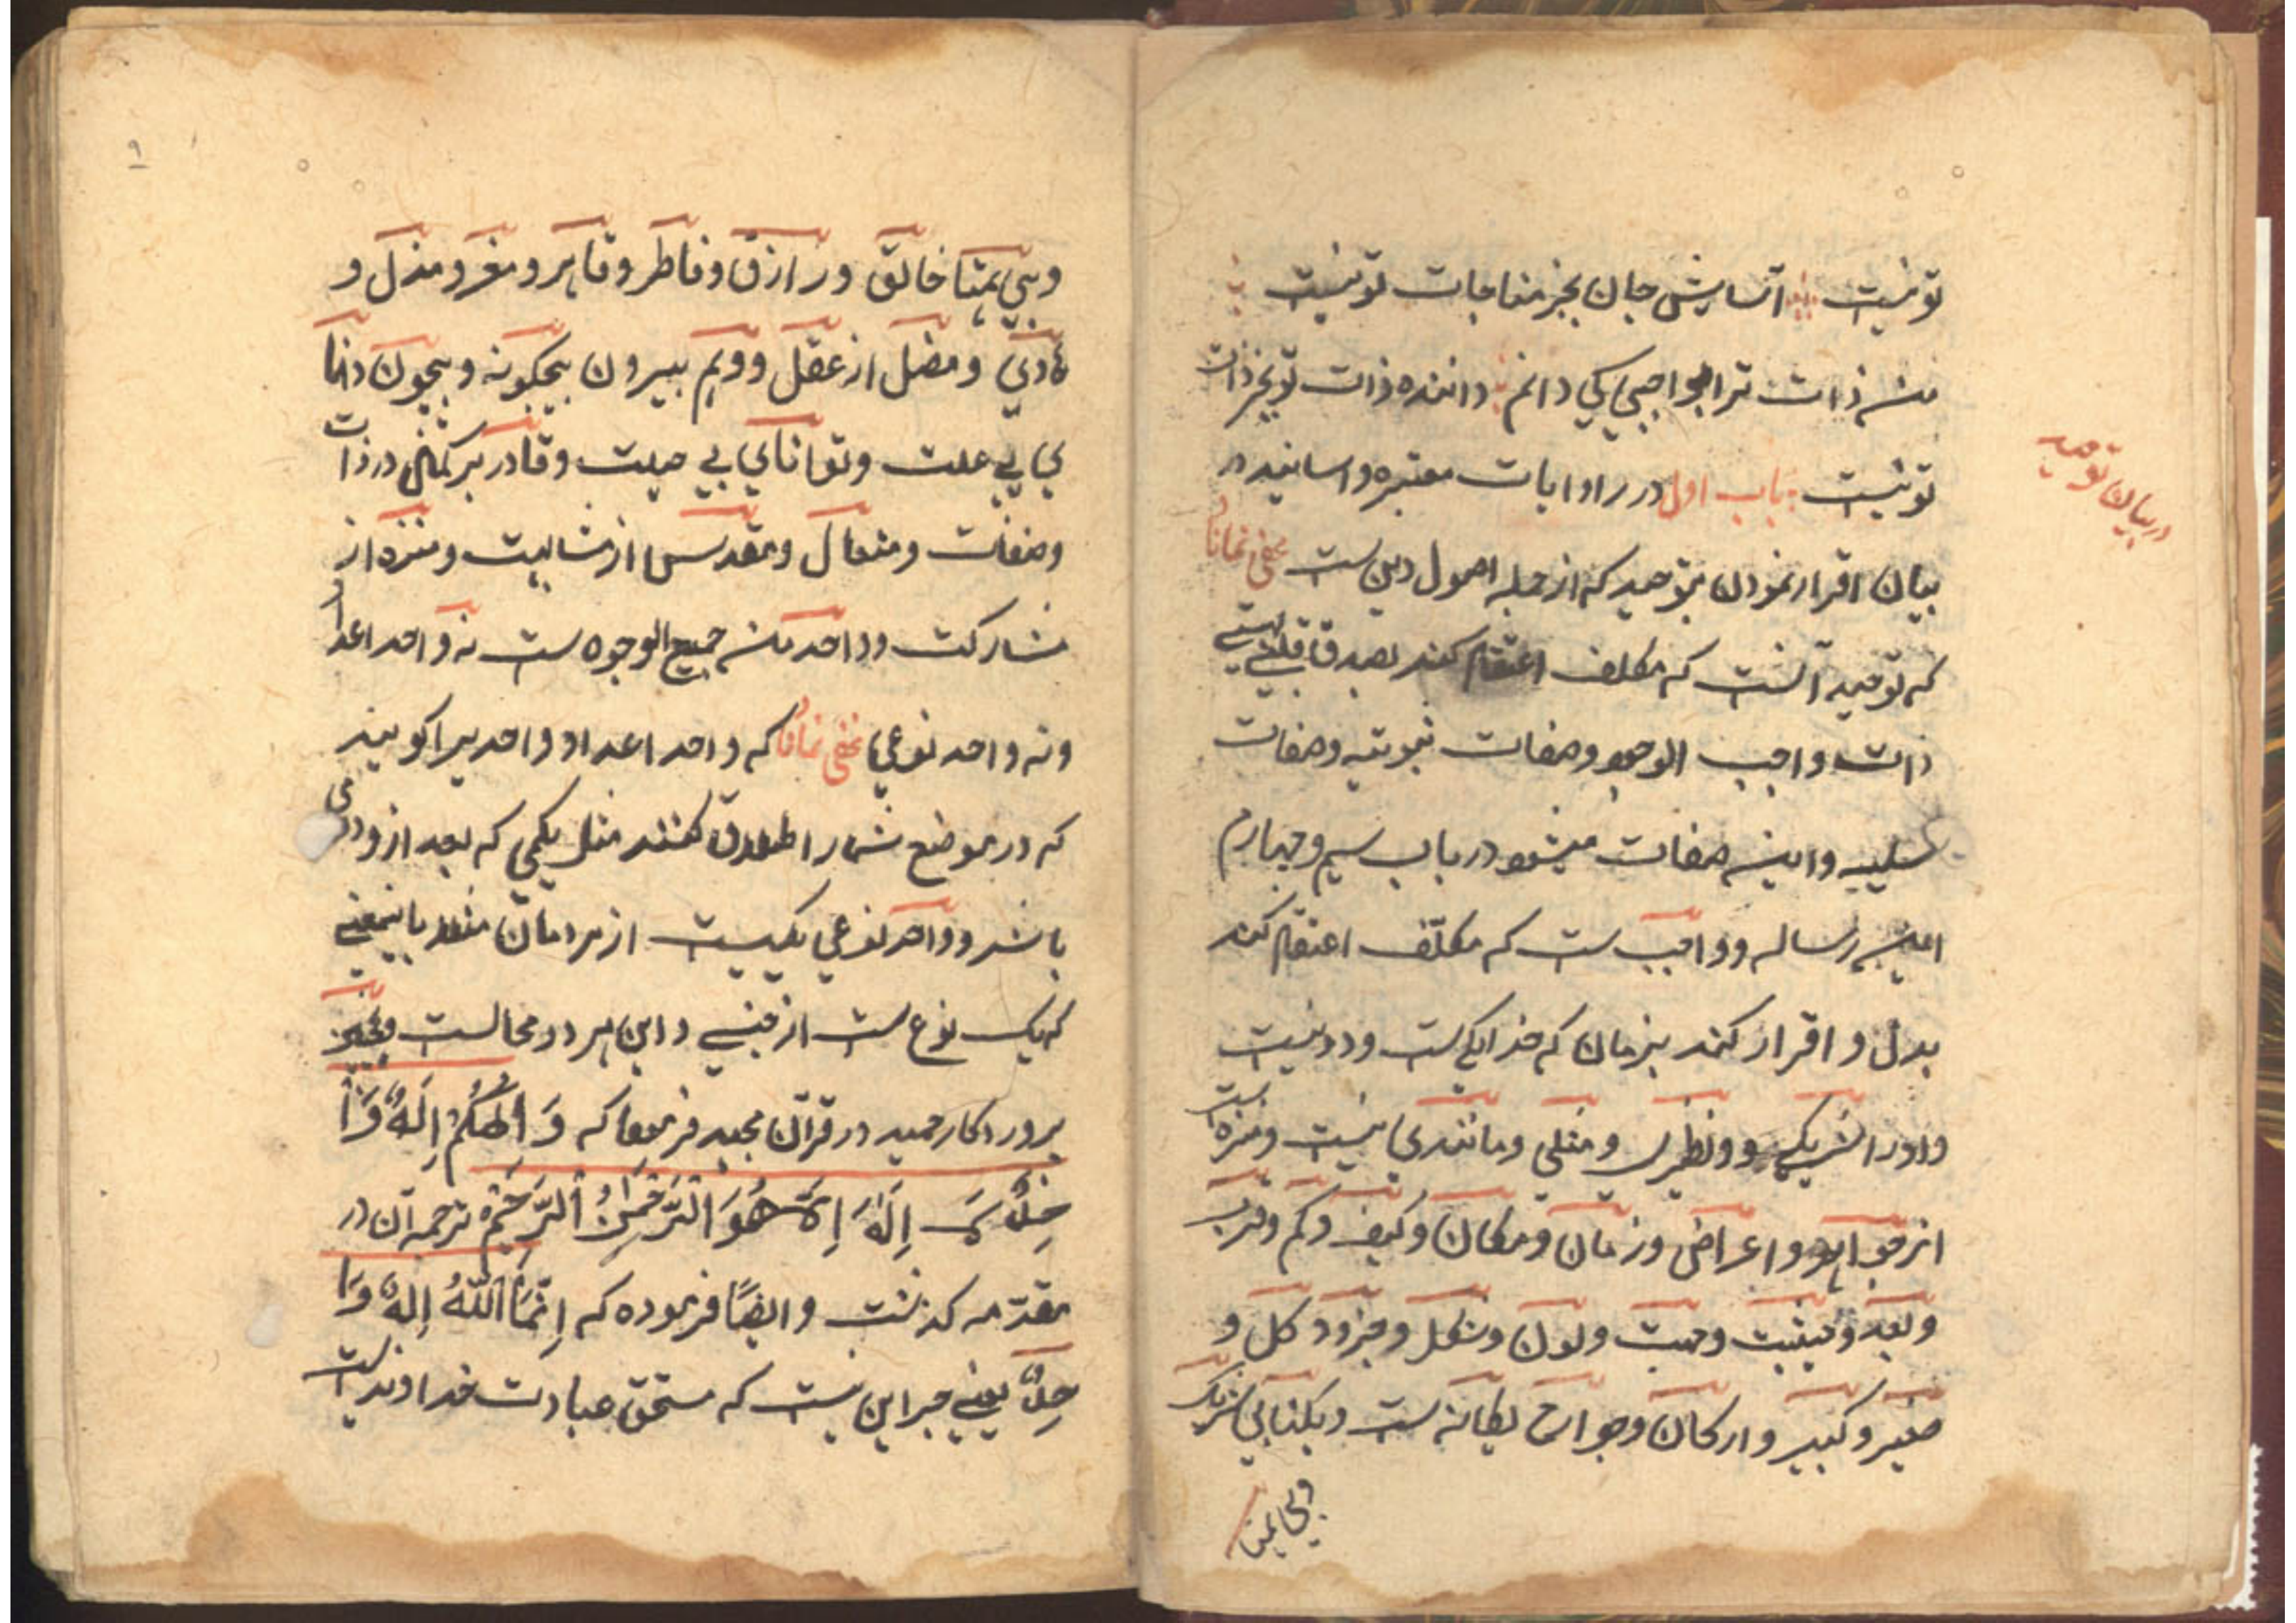 تو نیست آسایش جان بجز مناجات تو نیست
من ذات ترا بواجبی کی دانم داننده ذات تو بجز ذات
تو نیست باب اول در روایات معتبره و اسانید در
بیان اقرار نمودن بتوحید که از جمله اصول دین ست مخفی نماناد
که توحید آنست که مکلف اعتقاد کند بصدق قلب
ذات واجب الوجود وصفات ثبوتیه وصفات
سلبیه و صفات میشود در باب سیم وچهارم
این رساله و واجب ست که مکلّف اعتقاد کند
بدل و اقرار کند بزبان که خدا یکی ست و دو نیست
و او را شریکی و نظیری و مثلی و مانندی نیست و منزه است
از جواهر و اعراض و زمان و مکان و کیف و کم و قرب
و بعد و حیثیت و جهت و لون و شکل و جزو و کل و
صغیر و کبیر و ارکان و جوارح یگانه ست و یکتا بی شریک
وبی همتا
در بیان توحید
۹
وبی همتا خالق و رازق و فاطر و قاهر و معز و مذل و
هادی و مضل از عقل و وهم بیرون بیچگونه و بیچون دانا
ی بی علت و توانای بی حیلت و قادر بر کمال در ذات
وصفات و متعال و مقدس از مشابهت و منزه از
مشارکت و واحد من جمیع الوجوه ست نه واحد اعداد
ونه واحد نوعی مخفی نماناد که واحد اعداد واحدیرا گویند
که در موضع شمار اطلاق کنند مثل یکی که بعد از و دوی
باشد و واحد نوعی یکیست از مردمان مثلا باینمعنی
که یک نوع ست از جنسی و این هر دو محالست
پروردکار حمید در قرآن مجید فرمود که وَاِلٰهُكُمْ اِلٰهٌ وَا
حِدٌ لَا اِلٰهَ اِلَّا هُوَ الرَّحْمٰنُ الرَّحِیْمُ ترجمه آن در
مقدمه کذشت و ایضًا فرموده که اِنَّمَا اللّٰهُ اِلٰهٌ وَا
حِدٌ یعنی جز این نیست که مستحق عبادت خداوندیست